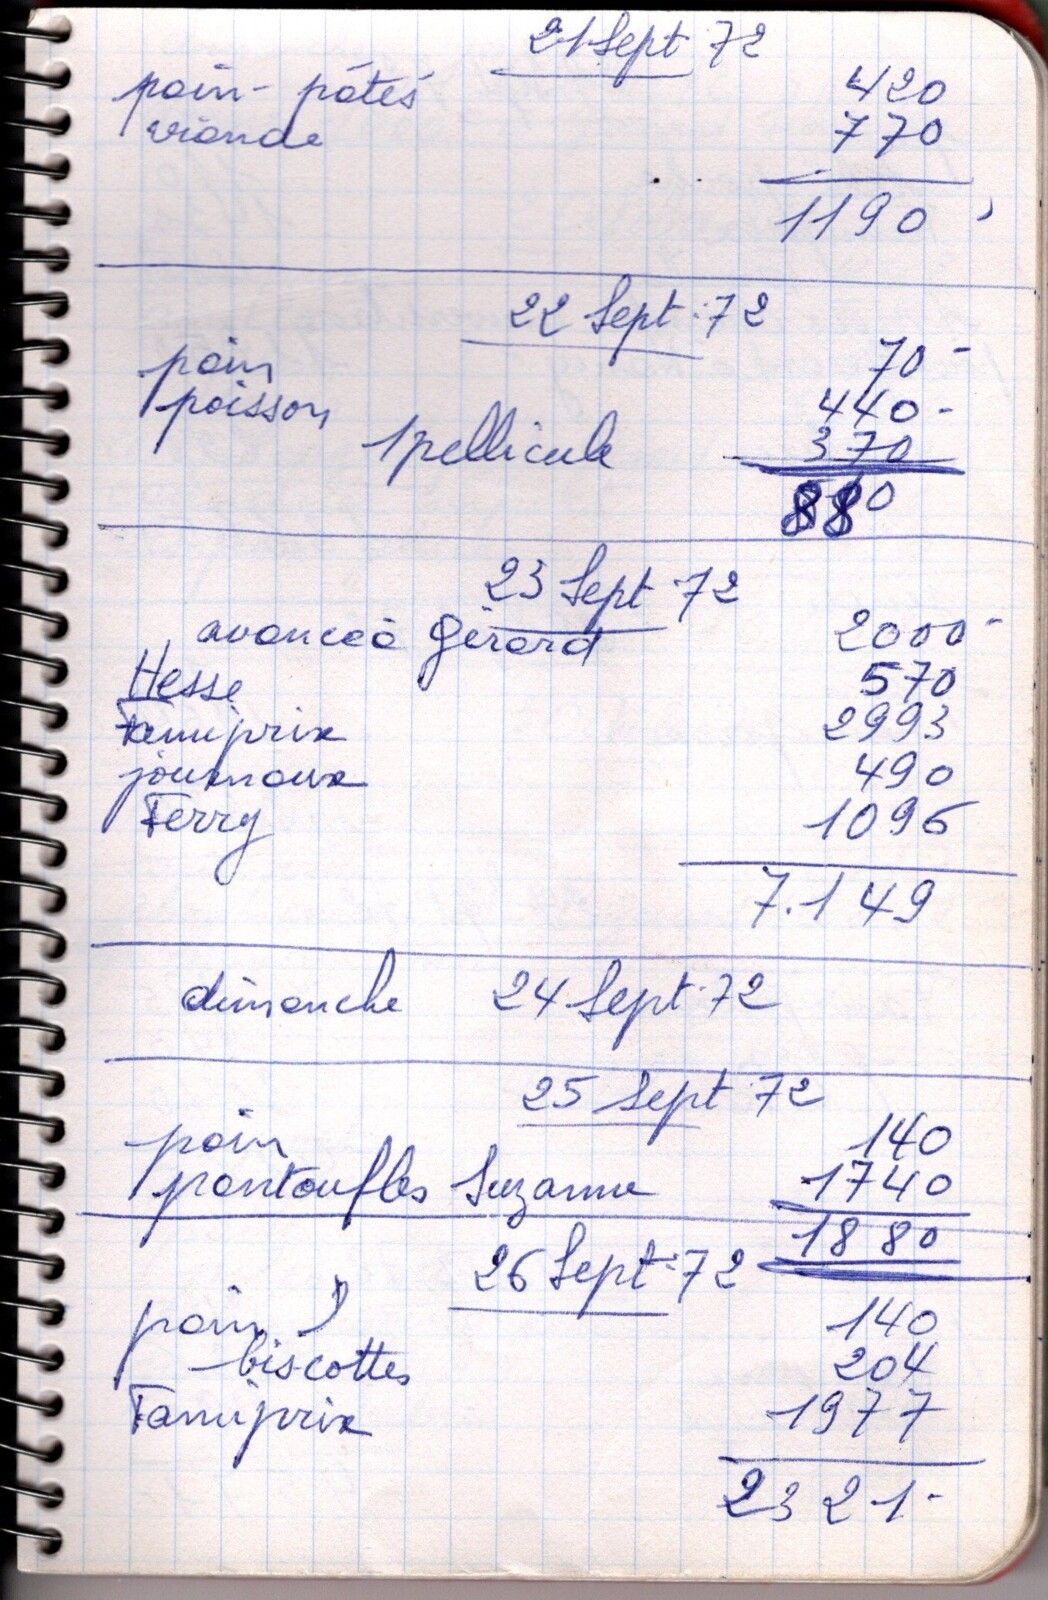 21 Sept 72
pain - pâtes 420
viande 770
1190
22 Sept. 72
pain 70 -
poisson 440 -
1 pellicule 370
880
23 Sept. 72
avance à Gérard 2000 -
Hesse 570
Famiprix 2993
journaux 490
Ferry 1096
7.149
dimanche 24 Sept. 72
25 Sept 72
pain 140
pantoufles Suzanne 1740
1880
26 Sept. 72
pain 140
biscottes 204
Famiprix 1977
2321 -